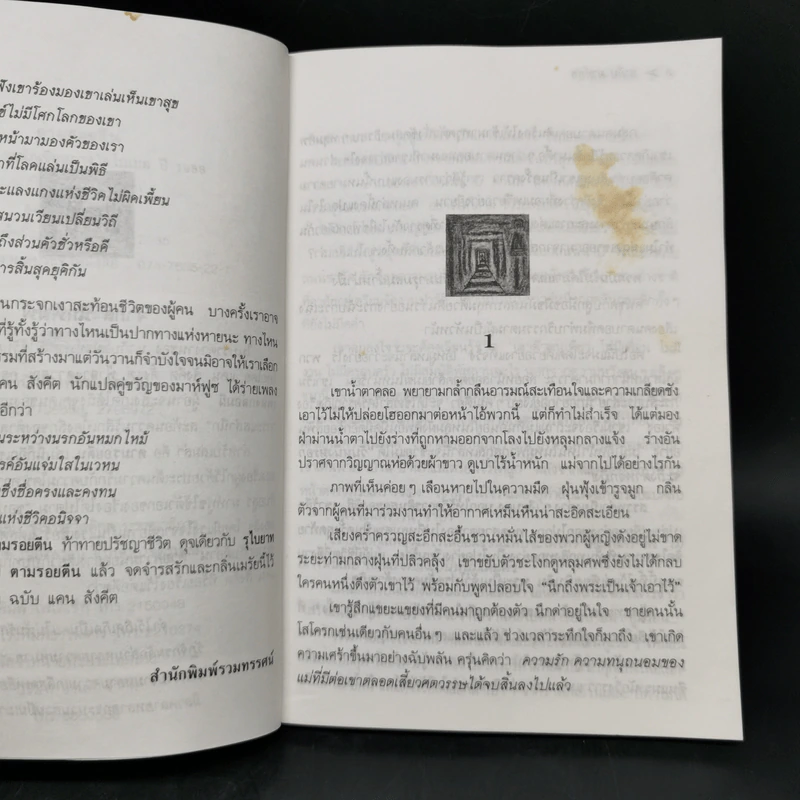 ฟังเขาร้องมองเขาเล่นเห็นเขาสุข
ไม่มีโศกโลกของเขา
หน้ามามองตัวของเรา
ที่โลดแล่นเป็นพิธี
แสลงแกงแห่งชีวิตไม่ผิดเพี้ยน
วนเวียนเปลี่ยนวิถี
ถึงส่วนตัวชั่วหรือดี
การสิ้นสุดยุติกัน
นกระจกเงาสะท้อนชีวิตของผู้คน บางครั้งเราอาจ
ที่รู้ทั้งรู้ว่าทางไหนเป็นปากทางแห่งหายนะ ทางไหน
รรมที่สร้างมาแต่วันวานก็จำบังใจจนมิอาจให้เราเลือก
คน สังคีต นักแปลคู่ขวัญของมาห์ฟูซ ได้ร่ายเพลง
อีกว่า
นระหว่างนรกอันหมกไหม้
รรค์อันแจ่มใสในเวหน
ซึ่งซื่อตรงและคงทน
แห่งชีวิตอนิจจา
ามรอยตีน ท้าทายปรัชญาชีวิต ดุจเดียวกับ รุไบยาท
ตามรอยตีน แล้ว จดจำรสรักและกลิ่นเมรัยนี้ไว้
ฉบับ แคน สังคีต
สำนักพิมพ์รวมทรรศน์
1
เขาน้ำตาคลอ พยายามกล้ำกลืนอารมณ์สะเทือนใจและความเกลียดชัง
เอาไว้ไม่ให้ปล่อยโฮออกมาต่อหน้าไอ้พวกนี้ แต่ก็ทำไม่สำเร็จ ได้แต่มอง
ฝ่าม่านน้ำตาไปยังร่างที่ถูกหามออกจากโลงไปยังหลุมกลางแจ้ง ร่างอัน
ปราศจากวิญญาณห่อด้วยผ้าขาว ดูเบาไร้น้ำหนัก แม่จากไปได้อย่างไรกัน
ภาพที่เห็นค่อยๆ เลือนหายไปในความมืด ฝุ่นฟุ้งเข้ารูจมูก กลิ่น
ตัวจากผู้คนที่มาร่วมงานทำให้อากาศเหม็นหืนน่าสะอิดสะเอียน
เสียงคร่ำครวญสะอึกสะอื้นชวนหมั่นไส้ของพวกผู้หญิงดังอยู่ไม่ขาด
ระยะท่ามกลางฝุ่นที่ปลิวคลุ้ง เขาขยับตัวชะโงกดูหลุมศพซึ่งยังไม่ได้กลบ
ใครคนหนึ่งดึงตัวเขาไว้ พร้อมกับพูดปลอบใจ “นึกถึงพระเป็นเจ้าเอาไว้”
เขารู้สึกแขยะแขยงที่มีคนมาถูกต้องตัว นึกด่าอยู่ในใจ ชายคนนั้น
โสโครกเช่นเดียวกับคนอื่นๆ และแล้ว ช่วงเวลาระทึกใจก็มาถึง เขาเกิด
ความเศร้าขึ้นมาอย่างฉับพลัน ครุ่นคิดว่า ความรัก ความทนุถนอมของ
แม่ที่มีต่อเขาตลอดเสี้ยวศตวรรษได้จบสิ้นลงไปแล้ว